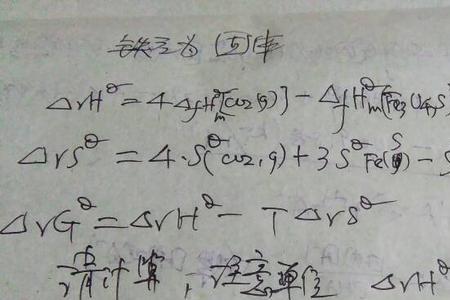 铁为固体
ΔrH^θ = 4ΔfH^θm[CO2(g)] - ΔfH^θm[Fe3O4,s
ΔrS^θ = 4·S^θ(CO2,g) + 3S^θ Fe(s) - S
ΔrG^θ = ΔrH^θ - TΔrS^θ
计算, 注意 单位 ΔrH^θ